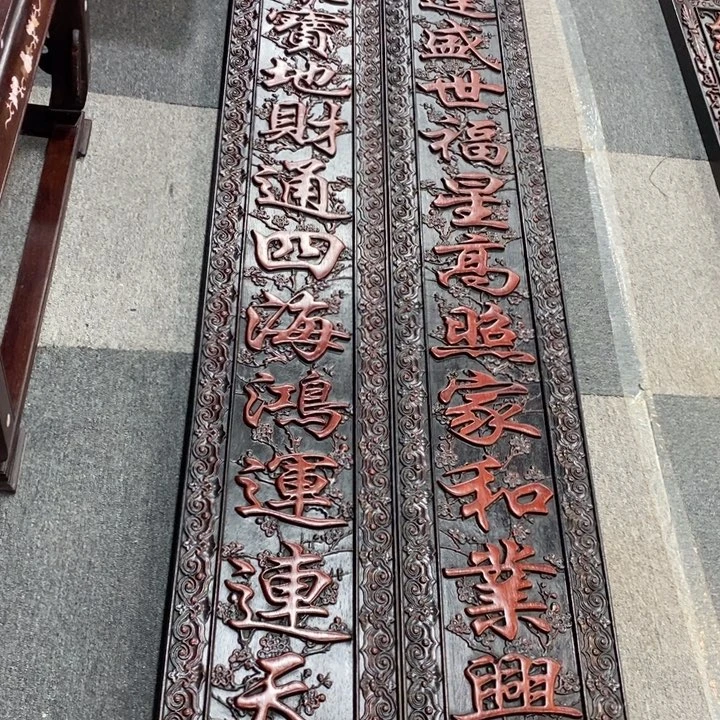 盛世福星高照家和業興
寶地財通四海鴻運連天